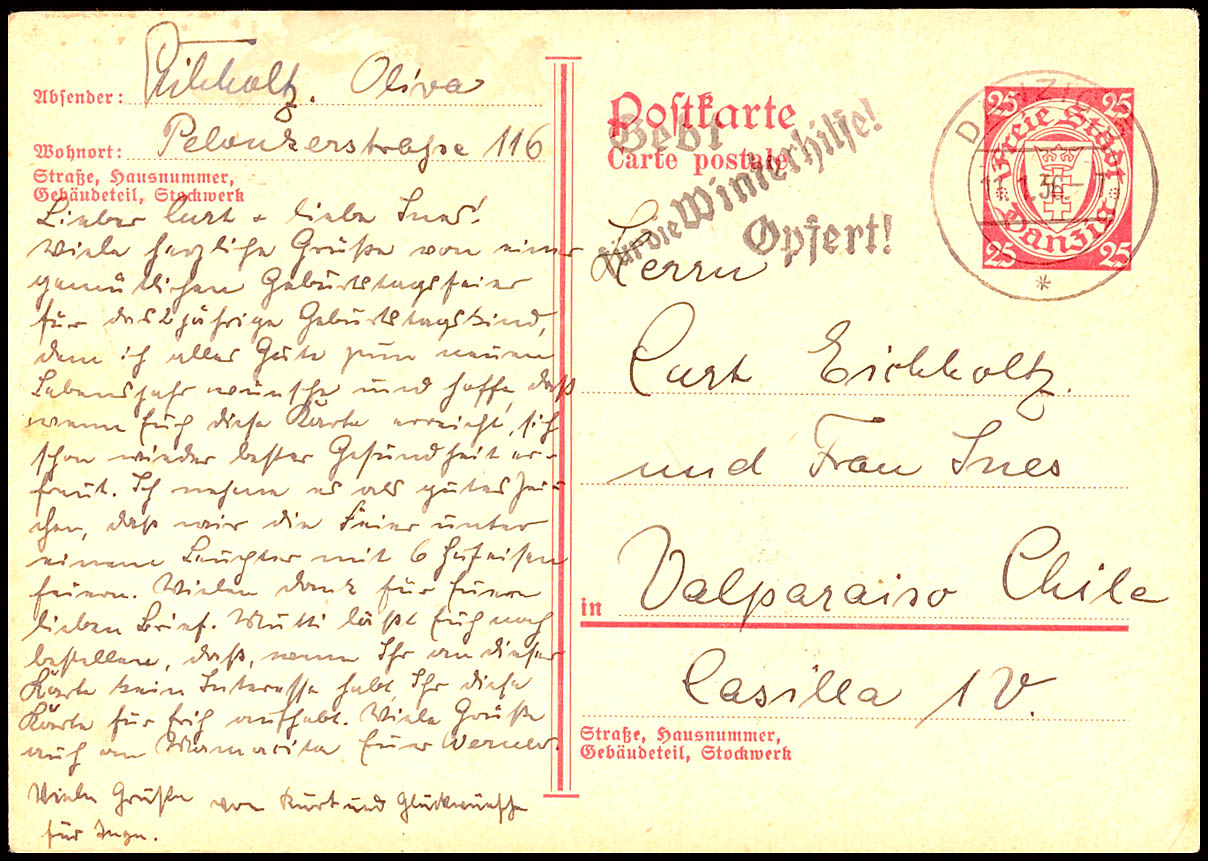 Absender: Eichholtz. Oliva
Wohnort: Pelonkerstraße 116
Straße, Hausnummer,
Gebäudeteil, Stockwerk
Lieber Curt + liebe Ines!
Viele herzliche Grüße von einer
gemütlichen Geburtstagsfeier
für das 2 jährige Geburtstagskind,
dem ich alles Gute zum neuen
Lebensjahr wünsche und hoffe, daß
wenn Euch diese Karte erreicht, sich
schon wieder bester Gesundheit er-
freut. Ich nehme es als gutes Zei-
chen, daß wir die Feier unter
einem Leuchter mit 6 Hufeisen
feiern. Vielen Dank für Euren
lieben Brief. Mutti läßt Euch noch
bestellen, daß, wenn Ihr an dieser
Karte kein Interesse habt, Ihr diese
Karte für Erich aufhebt. Viele Grüße
auch an Mamacita Euer Werner.
Viele Grüße von Kurt und Glückwünsche
für Inge.
Postkarte
Carte postale
Gebt
für die Winterhilfe!
Opfert!
DANZIG
11.1.36.-7
25 25
Freie Stadt
Danzig
25 25
Herrn
Curt Eichholtz.
und Frau Ines
in Valparaiso Chile
Casilla 1V.
Straße, Hausnummer,
Gebäudeteil, Stockwerk